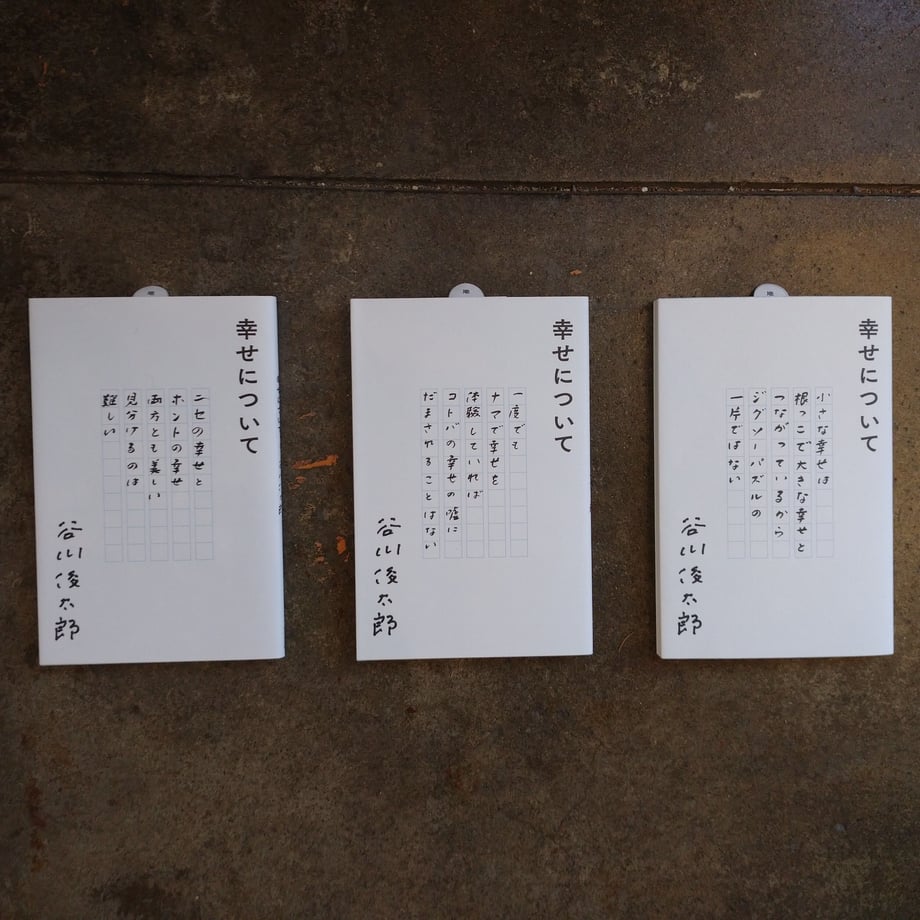 幸せについて
ニセの幸せと
ホントの幸せ
両方とも美しい
見分けるのは
難しい
谷川俊太郎
幸せについて
一度でも
ナマで幸せを
体験していれば
コトバの幸せの嘘に
だまされることはない
谷川俊太郎
幸せについて
小さな幸せは
根っこで大きな幸せと
つながっているから
ジグソーパズルの
一片ではない
谷川俊太郎